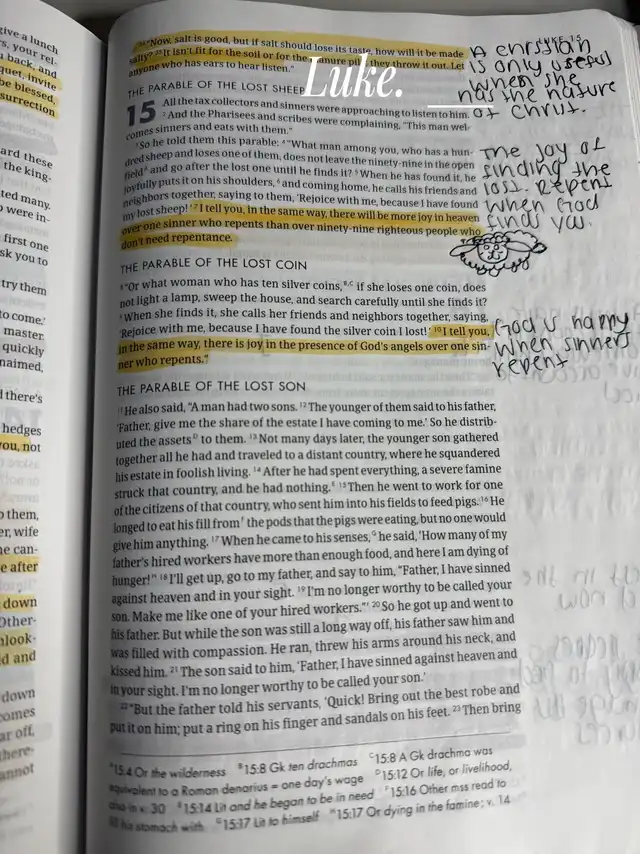 give a lunch
s, your rel-
u back, and
quet, invite
be blessed,
surrection
ard these
the king-
ted many.
were in-
first one
sk you to
try them
to come.'
master.
quickly
maimed,
there's
hedges
you, not
o them,
er, wife
e can-
e after
down
Other-
nlook-
d and
down
comes
ar off,
there-
annot
"Now, salt is good, but if salt should lose its taste, how will it be made
salty? 35 It isn't fit for the soil or for the manure pile; they throw it out. Let
anyone who has ears to hear listen."
Luke.
LUKE 15
THE PARABLE OF THE LOST SHEEP
15 All the tax collectors and sinners were approaching to listen to him.
2 And the Pharisees and scribes were complaining, "This man wel-
comes sinners and eats with them."
3 So he told them this parable: 4 "What man among you, who has a hun-
dred sheep and loses one of them, does not leave the ninety-nine in the open
field A and go after the lost one until he finds it? 5 When he has found it, he
joyfully puts it on his shoulders, 6 and coming home, he calls his friends and
neighbors together, saying to them, 'Rejoice with me, because I have found
my lost sheep!' 7 I tell you, in the same way, there will be more joy in heaven
over one sinner who repents than over ninety-nine righteous people who
don't need repentance.
THE PARABLE OF THE LOST COIN
8 "Or what woman who has ten silver coins, B,C if she loses one coin, does
not light a lamp, sweep the house, and search carefully until she finds it?
9 When she finds it, she calls her friends and neighbors together, saying,
'Rejoice with me, because I have found the silver coin I lost!' 10 I tell you,
in the same way, there is joy in the presence of God's angels over one sin-
ner who repents."
THE PARABLE OF THE LOST SON
11 He also said, "A man had two sons. 12 The younger of them said to his father,
'Father, give me the share of the estate I have coming to me.' So he distrib-
uted the assets D to them. 13 Not many days later, the younger son gathered
together all he had and traveled to a distant country, where he squandered
his estate in foolish living. 14 After he had spent everything, a severe famine
struck that country, and he had nothing. E 15 Then he went to work for one
of the citizens of that country, who sent him into his fields to feed pigs. 16 He
longed to eat his fill from F the pods that the pigs were eating, but no one would
give him anything. 17 When he came to his senses, G he said, 'How many of my
father's hired workers have more than enough food, and here I am dying of
hunger! H 18 I'll get up, go to my father, and say to him, "Father, I have sinned
against heaven and in your sight. 19 I'm no longer worthy to be called your
son. Make me like one of your hired workers."' 20 So he got up and went to
his father. But while the son was still a long way off, his father saw him and
was filled with compassion. He ran, threw his arms around his neck, and
kissed him. 21 The son said to him, 'Father, I have sinned against heaven and
in your sight. I'm no longer worthy to be called your son.'
22 "But the father told his servants, 'Quick! Bring out the best robe and
put it on him; put a ring on his finger and sandals on his feet. 23 Then bring
A 15:4 Or the wilderness B 15:8 Gk ten drachmas C 15:8 A Gk drachma was
equivalent to a Roman denarius = one day's wage D 15:12 Or life, or livelihood,
also in v. 30 E 15:14 Lit and he began to be in need F 15:16 Other mss read to
fill his stomach with G 15:17 Lit to himself H 15:17 Or dying in the famine; v. 14
A christian
is only useful
when she
has the nature
of Christ.
The joy of
finding the
lost. Repent
when God
finds you.
God is happy
when sinners
repent